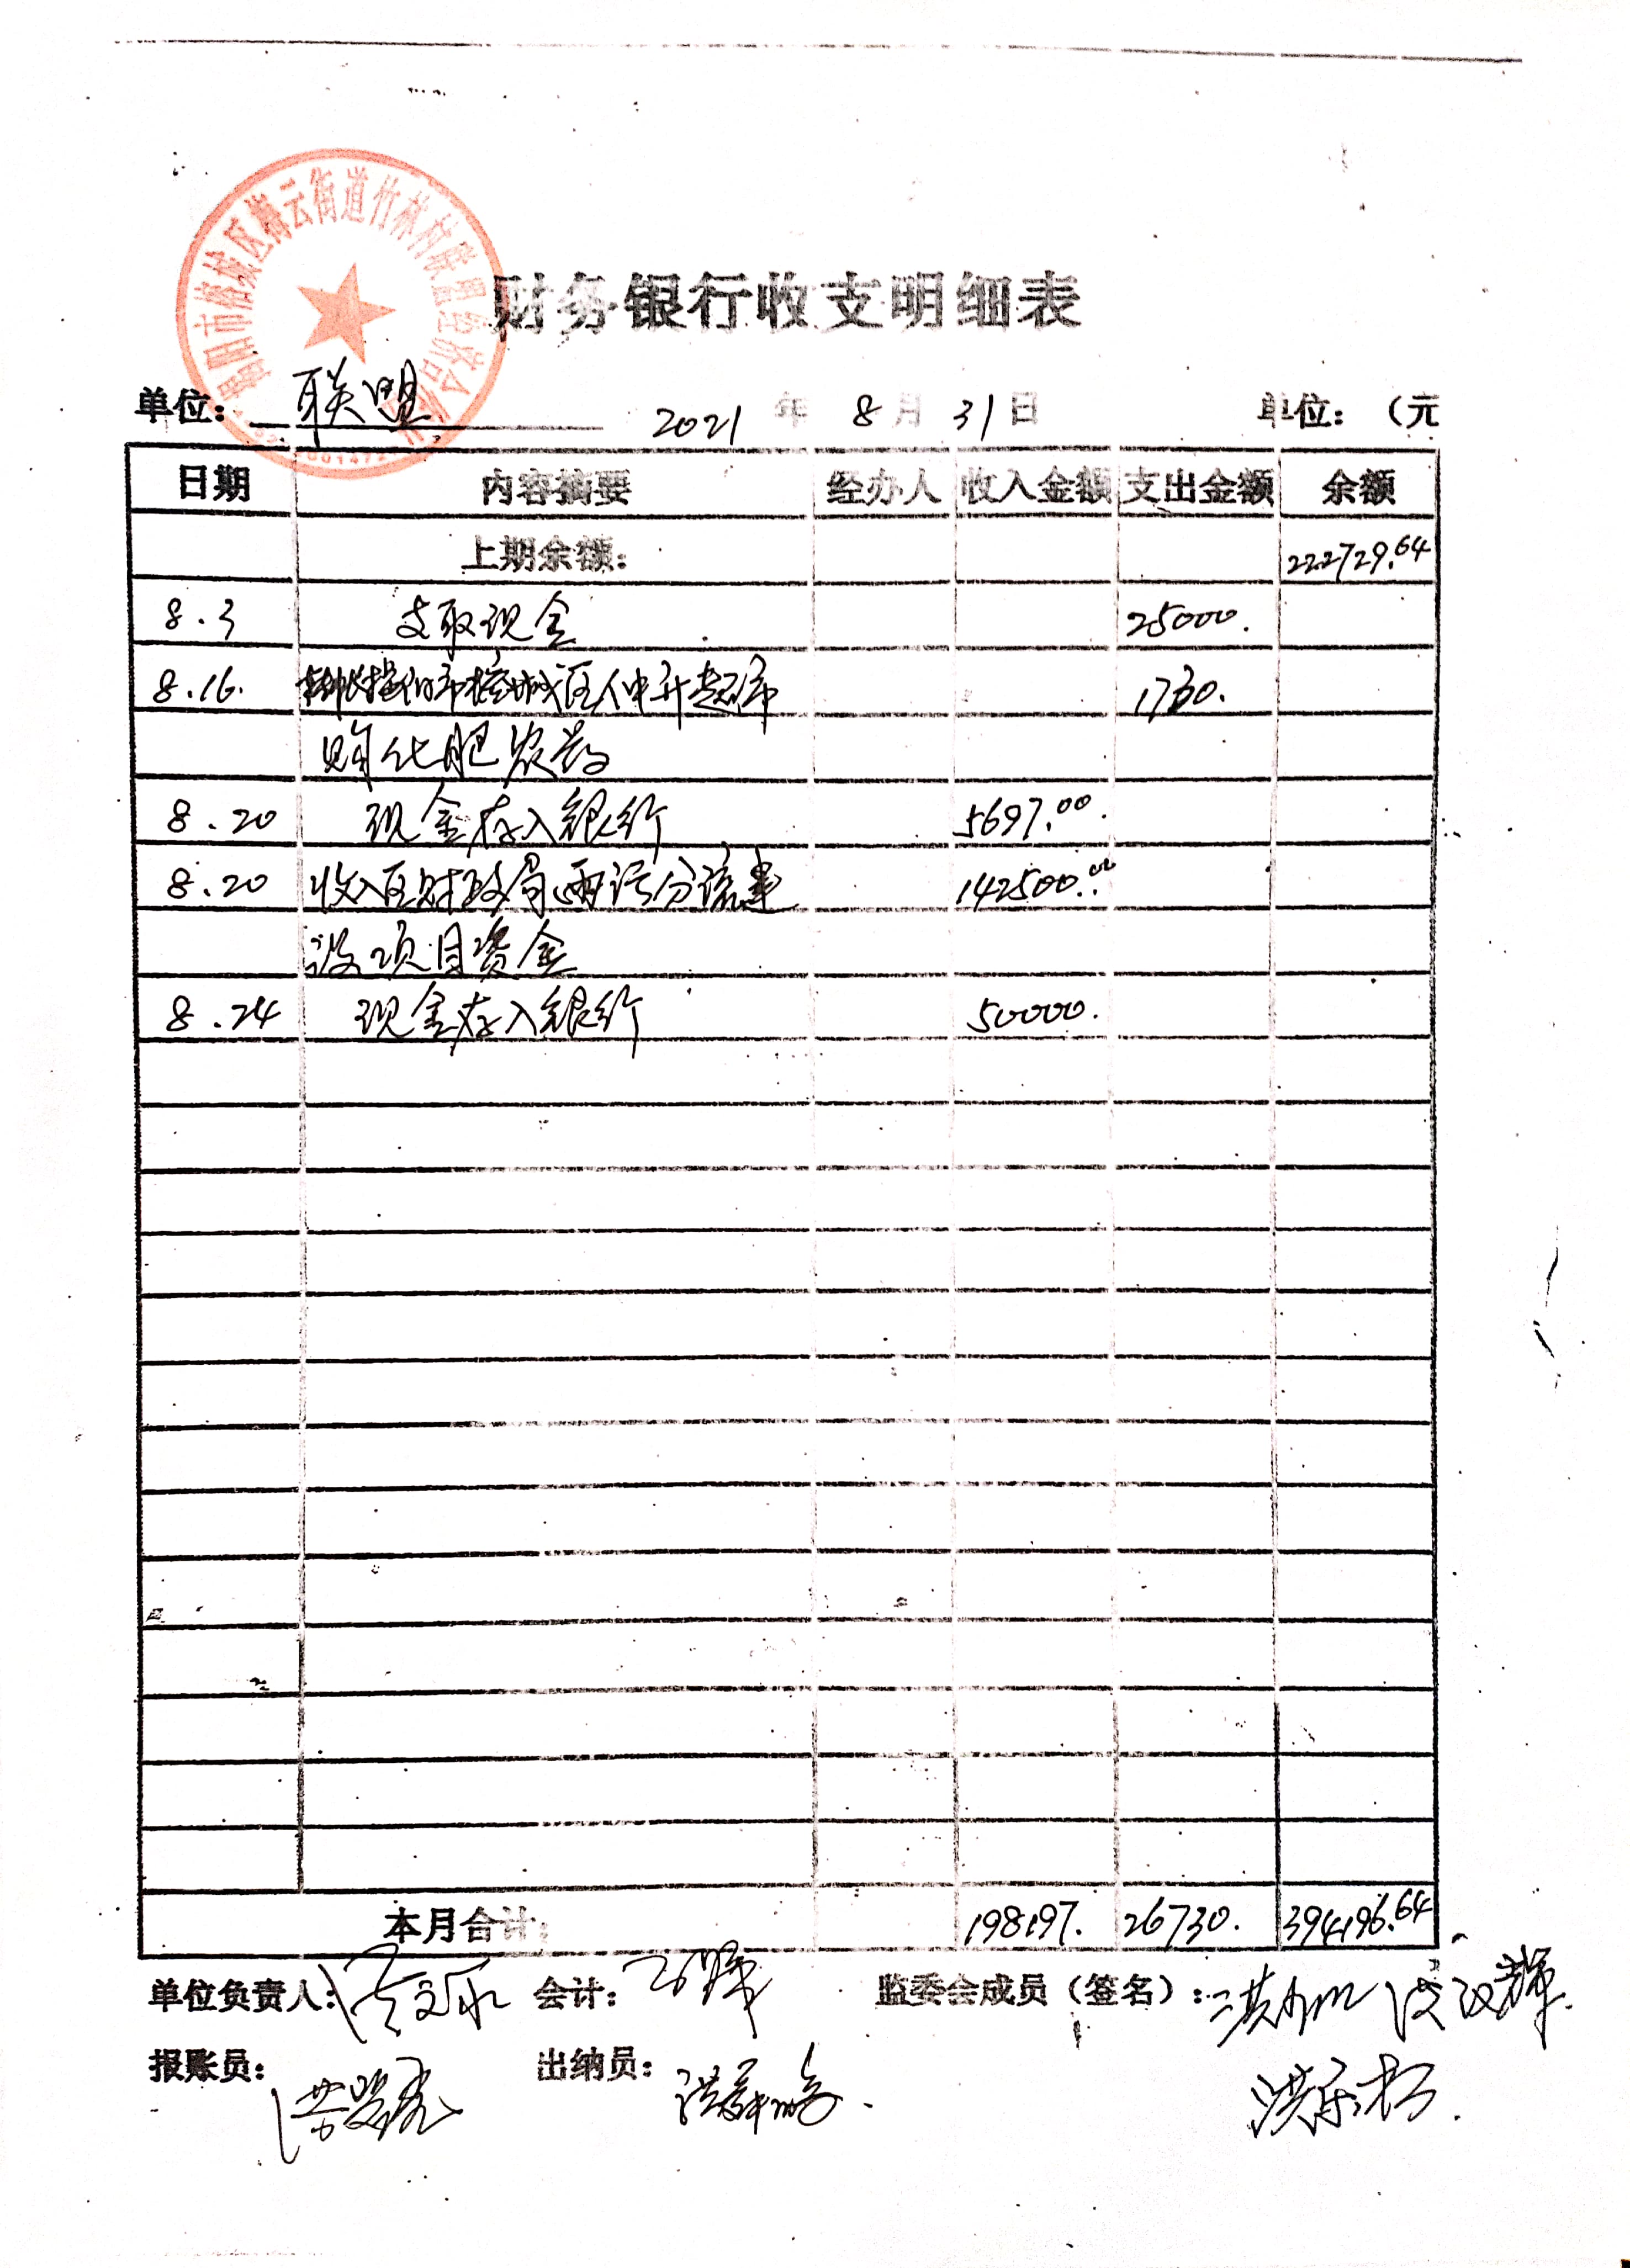 揭阳市榕城区梅云街道竹林村联盟经济合作社
财务银行收支明细表
单位: 联盟 2021 年 8 月 31 日 单位:(元
日期 内容摘要 经办人 收入金额 支出金额 余额
上期余额: 222729.64
8.3 支取现金 25000.
8.16. 揭阳市榕城区仲升超市 1730.
购化肥农药
8.20 现金存入银行 5697.00
8.20 收入区财政局雨污分流建 142500.00
设项目资金
8.24 现金存入银行 50000.
本月合计: 198197. 26730. 394196.64
单位负责人: 会计: 监委会成员(签名):
报账员: 出纳员: